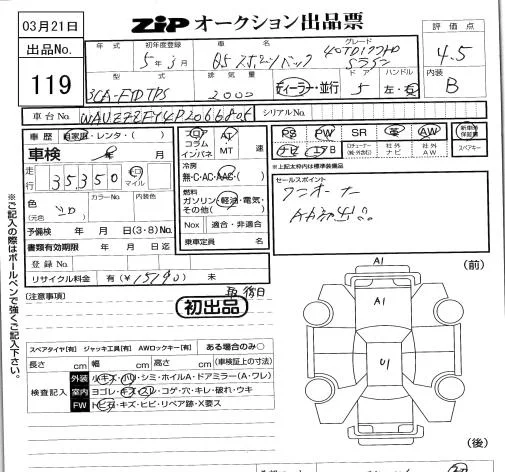 03月21日
ZiP オークション出品票
評価点
4.5
内装
B
出品No.
119
年式
初年度登録
車名
グレード
5年3月
Q5 スポーツバック
40TDIクワトロ
Sライン
型式
排気量
ドア
ハンドル
3CA-FYDTPS
2000
ディーラー・並行
5
左・右
車台No.
シリアルNo.
車歴
自家用・レンタ・( )
車検
年 月
走行
35350
キロ
マイル
色
(元色 )
カラーNo.
内装色
予備検 年 月 日(3・8)No.
書類有効期限 年 月 日迄
登録No.
リサイクル料金 有(¥15190) 未
フロア
コラム
インパネ
AT
MT
速
冷房
無・C・AC・AAC・( )
燃料
ガソリン・軽油・電気・
その他( )
Nox
適合・非適合
乗車定員 名
PS
PW
SR
革
AW
新車時保証書
ナビ
TV
社外ナビ
社外AW
スペアキー
※上記太枠内は標準装備品
セールスポイント
ワンオーナー
AA初出品
※ご記入の際はボールペンで強くご記入下さい。
[注意事項]
初出品
スペアタイヤ[有] ジャッキ工具[有] AWロックキー[有] ある場合のみ○
長さ cm 幅 cm 高さ cm (車検証上の寸法)
検査記入
外装 小キズ・凹・シミ・ホイルA・ドアミラー(A・ワレ)
室内 ヨゴレ・キズ・スレ・コゲ・穴・キレ・破れ・ウキ
FW トビ石・キズ・ヒビ・リペア跡・X要ス
A1
(前)
A1
U1
(後)